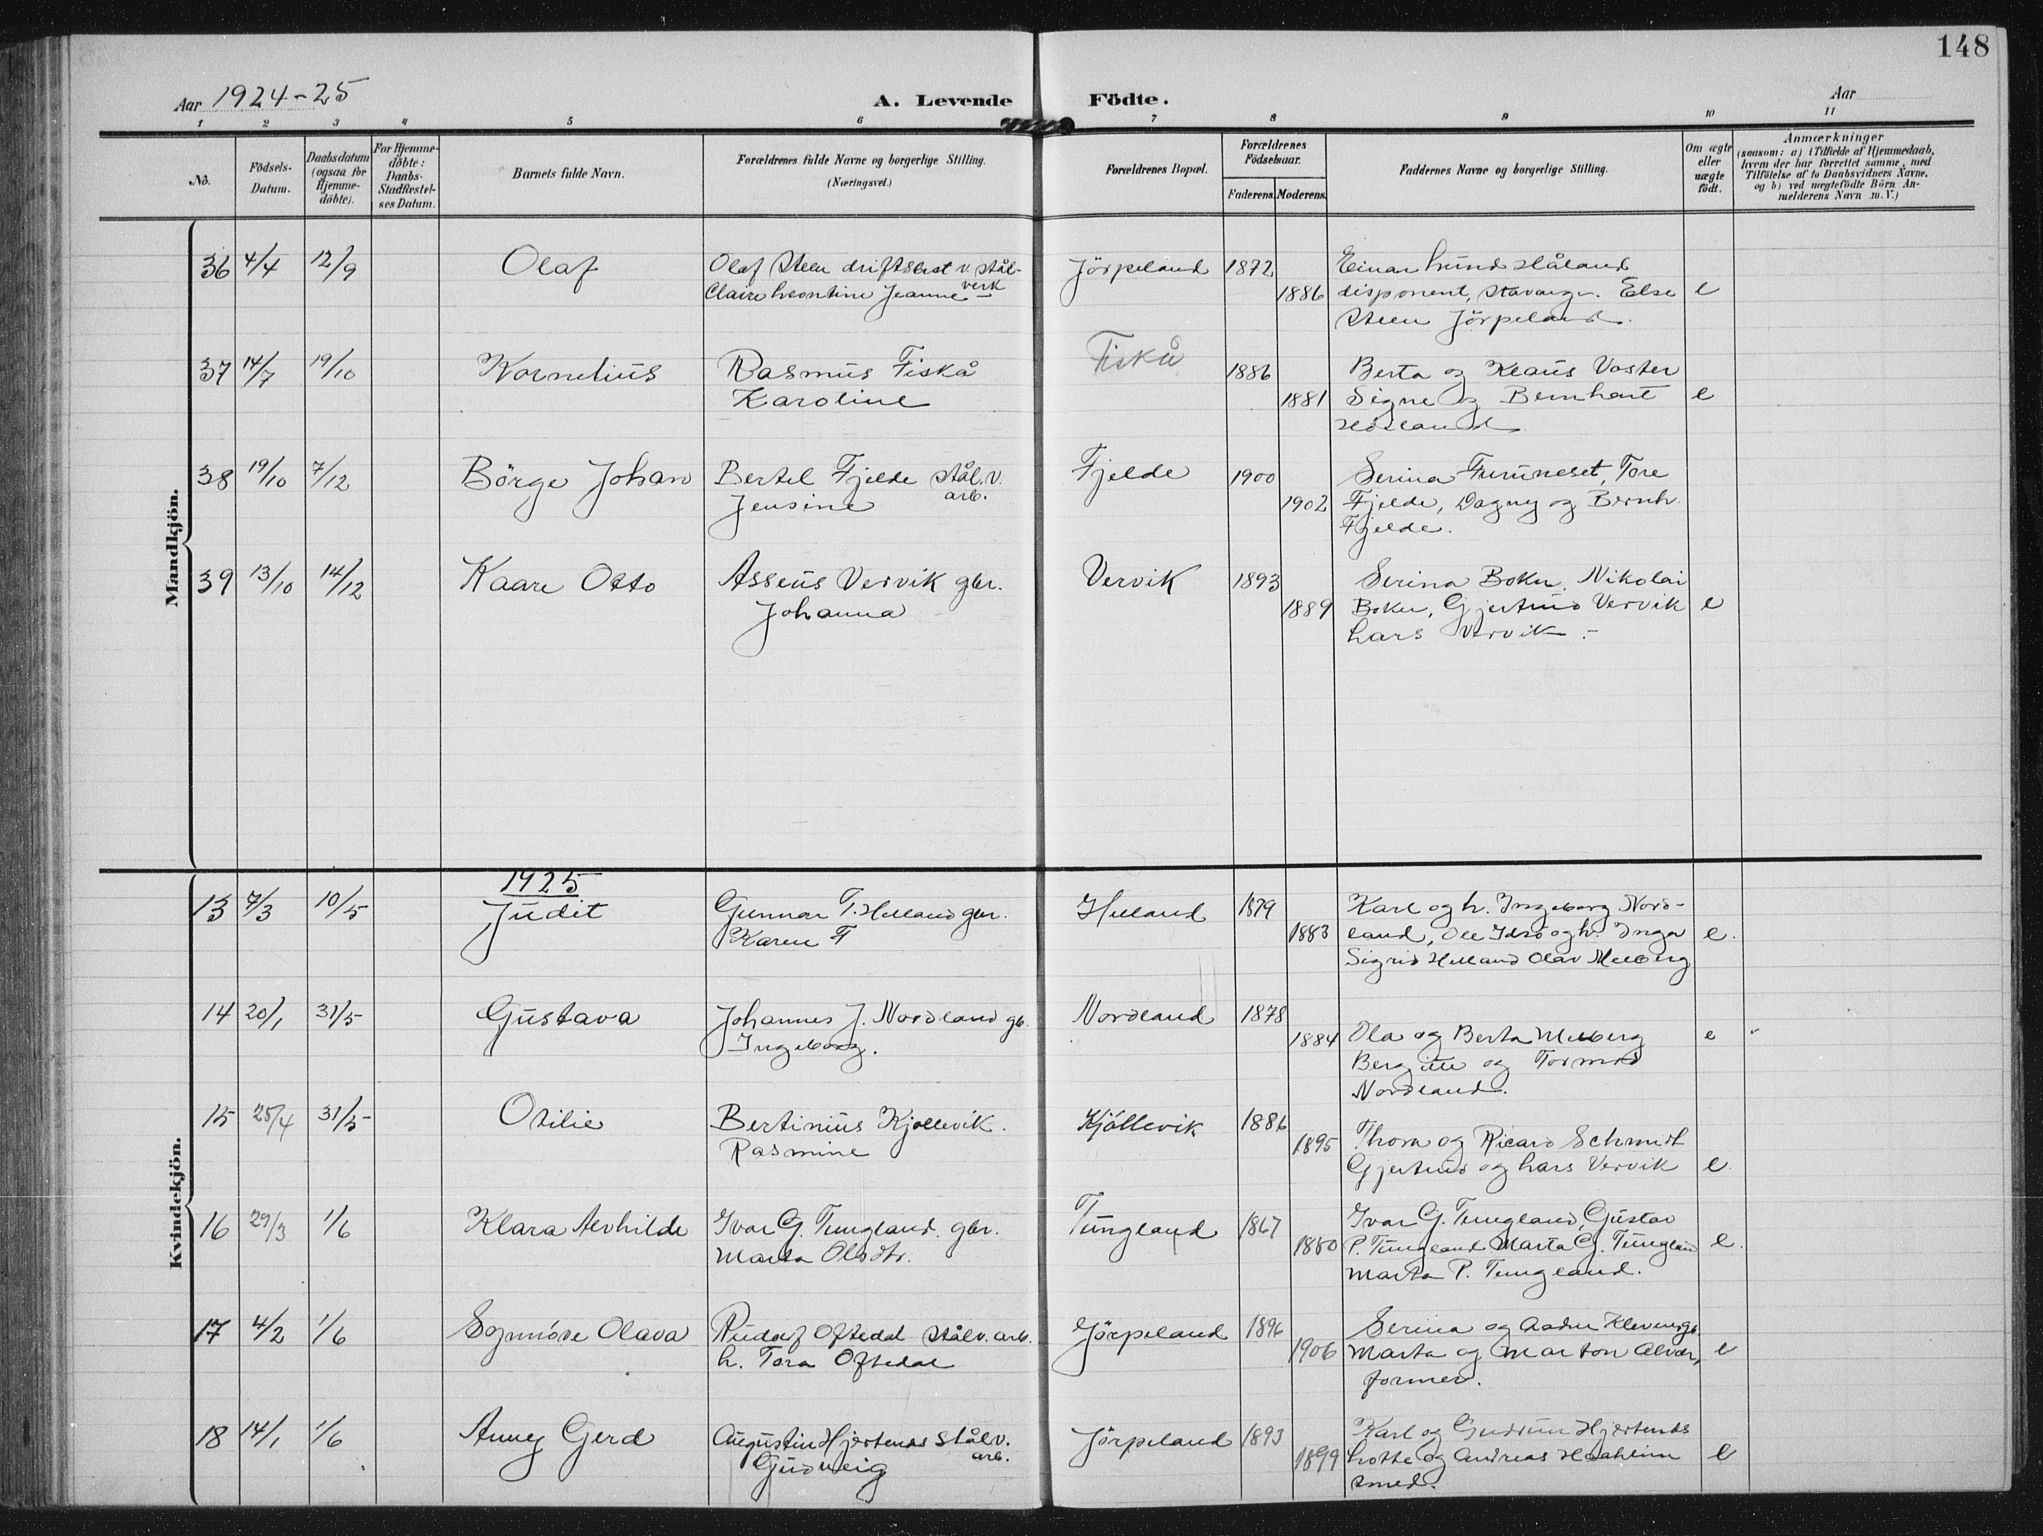 148
Aar 1924-25 A. Levende Födte. Aar
1 2 3 4 5 6 7 8 9 10 11
No.
Födsels-Datum.
Daabsdatum (ogsaa for Hjemme-döbte).
For Hjemme-döbte: Daabs-Stadfæstel-ses Datum.
Barnets fulde Navn.
Forældrenes fulde Navne og borgerlige Stilling.
(Næringsvei.)
Forældrenes Bopæl.
Forældrenes Födselsaar.
Faderens. Moderens.
Faddernes Navne og borgerlige Stilling.
Om ægte eller uægte födt.
Anmærkninger
(saasom: a) i Tilfælde af Hjemmedaab, hvem der har forrettet samme, med Tilföielse af to Daabsvidners Navne, og b) ved uægtefödte Börn An-melderens Navn m. V.)
Mandkjön.
36 4/4 12/9 Olaf Olaf Steen driftsbest. v. stål- Jörpeland 1872 Einar Lund Håland
Claire Leontine Jeanne verk 1886 disponent, Stavanger. Else e
Steen Jörpeland.
37 14/7 19/10 Kornelius Rasmus Fiskå Fiskå 1886 Berta og Klaus Vaster
Karoline 1881 Signe og Bernhart e
38 19/10 7/12 Börge Johan Bertel Fjelde stålv. Fjelde 1900 Serina Furuneset, Tore
Jensine arb. 1902 Fjelde, Dagny og Bernh.
Fjelde.
39 13/10 14/12 Kaare Otto Asseus Vervik gbr. Vervik 1893 Serina Boken, Nikolai
Johanna 1889 Boken, Gjertrud Vervik e
Lars Vervik.-
Kvindekjön.
1925
13 7/3 10/5 Judit Gunnar T. Helland gbr. Helland 1879 Karl og h. Ingeborg Nord-
Karen F 1883 land, Ole Idsö og h. Inga e.
Sigrid Helland Olav Melberg
14 20/1 31/5 Gustava Johannes J. Nordland gb. Nordland 1878
Ingeborg. 1884 Ola og Berta Melberg e
Bergitte og Tormod
Nordland.
15 25/4 31/5- Otilie Bertinius Kjöllevik. Kjöllevik 1886
Rasmine 1895 Thora og Ricard Schmidt
Gjertrud og Lars Vervik e.
16 29/3 1/6 Klara Alvhilde Ivar G. Tungland. gbr. Tungland 1867 Ivar G. Tungland, Gustav
Marta Olsdtr. 1880 P. Tungland Marta G. Tunglan e.
Marta P. Tungland.
17 4/2 1/6 Synnöve Olava Rudolf Oftedal stålv. arb. Jörpeland 1896 Serina og
h. Tora Oftedal 1906 Marta og Marton e
former.
18 14/1 1/6 Anny Gerd Augustin Hjertenes stålv. Jörpeland 1893 Karl og Gudrun Hjertenes
Gudveig arb. 1899 Lotte og Andreas e
smed.